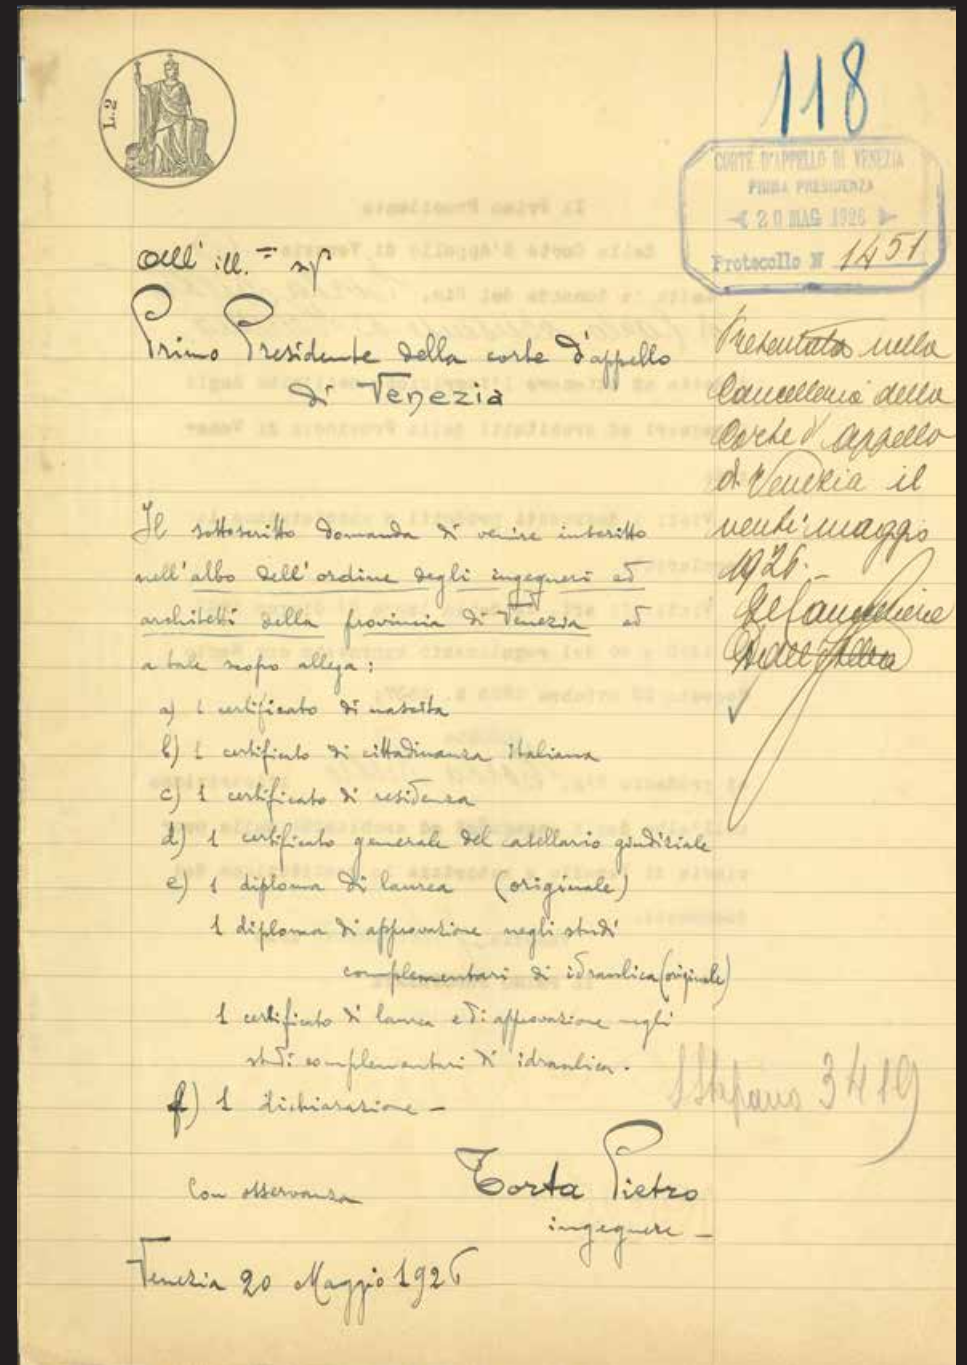 L. 2
118
CORTE D'APPELLO DI VENEZIA
PRIMA PRESIDENZA
20 MAG 1926
Protocollo N 1451
All' ill.= sig
Primo Presidente della corte d'appello
di Venezia
Presentata nella
Cancelleria della
Corte d'appello
di Venezia il
venti maggio
1926.-
Il Cancelliere
Il sottoscritto domanda di venire inscritto
nell'albo dell'ordine degli ingegneri ed
architetti della provincia di Venezia ed
a tale scopo allega:
a) 1 certificato di nascita
b) 1 certificato di cittadinanza italiana
c) 1 certificato di residenza
d) 1 certificato generale del casellario giudiziale
e) 1 diploma di laurea (originale)
1 diploma di approvazione negli studi
complementari di idraulica (originale)
1 certificato di laurea e di approvazione negli
studi complementari di idraulica.
f) 1 dichiarazione -
S Stefano 3419
Con osservanza
Torta Pietro
ingegnere -
Venezia 20 Maggio 1926